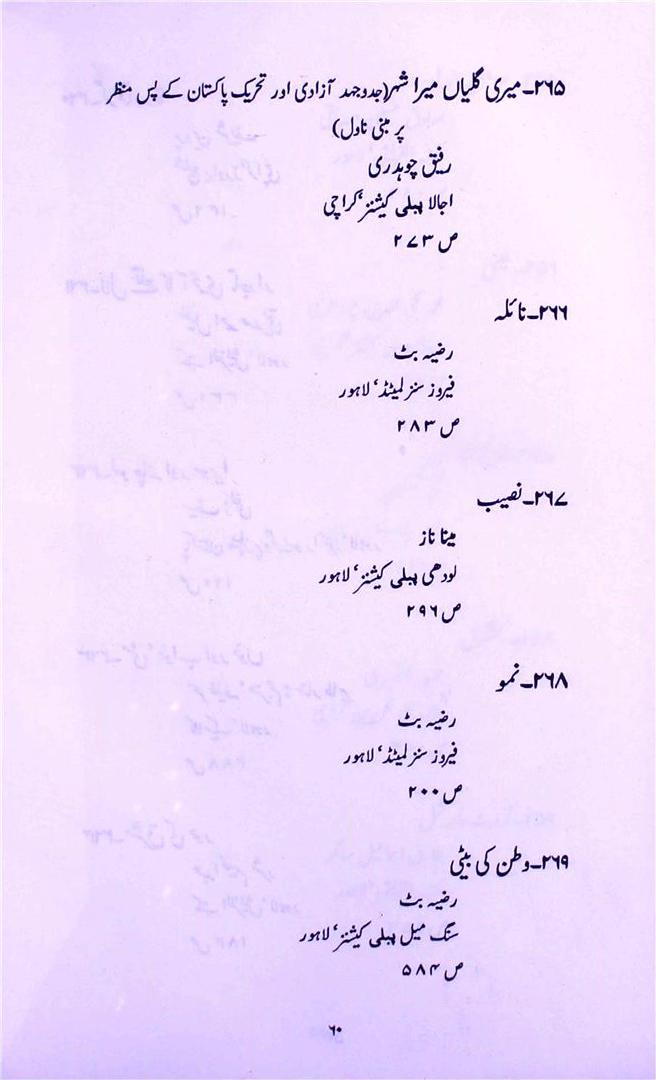 ۲۶۵۔میری گلیاں میرا شہر(جدوجہد آزادی اور تحریک پاکستان کے پس منظر
پر مبنی ناول)
رفیق چوہدری
اجالا پبلی کیشنز‘کراچی
ص ۲۷۳
۲۶۶۔نائلہ
رضیہ بٹ
فیروز سنز لمیٹڈ‘ لاہور
ص ۲۸۳
۲۶۷۔نصیب
مینا ناز
لودھی پبلی کیشنز‘ لاہور
ص ۲۹۶
۲۶۸۔نمو
رضیہ بٹ
فیروز سنز لمیٹڈ‘ لاہور
ص ۲۰۰
۲۶۹۔وطن کی بیٹی
رضیہ بٹ
سنگ میل پبلی کیشنز‘ لاہور
ص ۵۸۴
۶۰